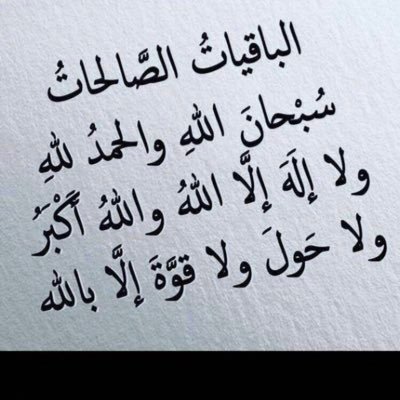 الباقياتُ الصَّالحاتُ
سُبْحانَ اللهِ والحمدُ للهِ
ولا إلَهَ إلَّا اللهُ واللهُ أَكْبَرُ
ولا حَولَ ولا قوَّةَ إلَّا بالله